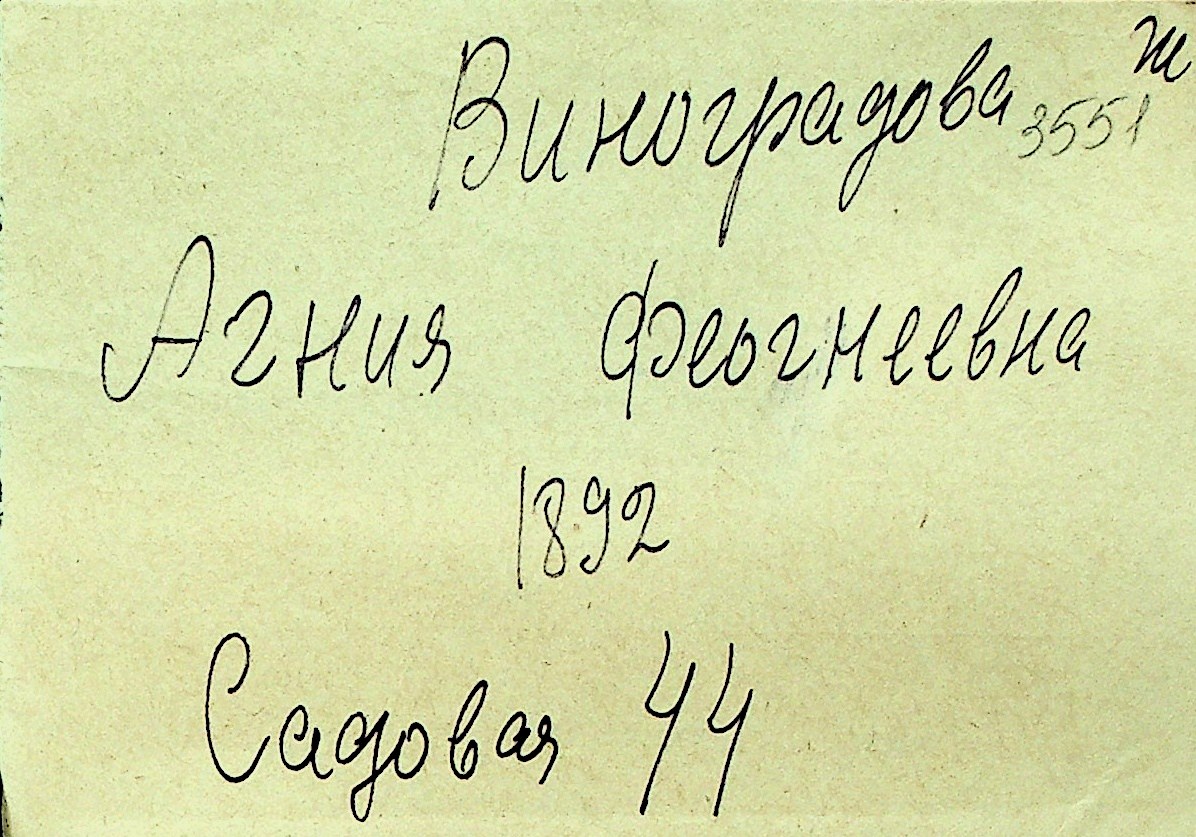 Ж
Виноградова 3551
Агния Феогнеевна
1892
Садовая 44